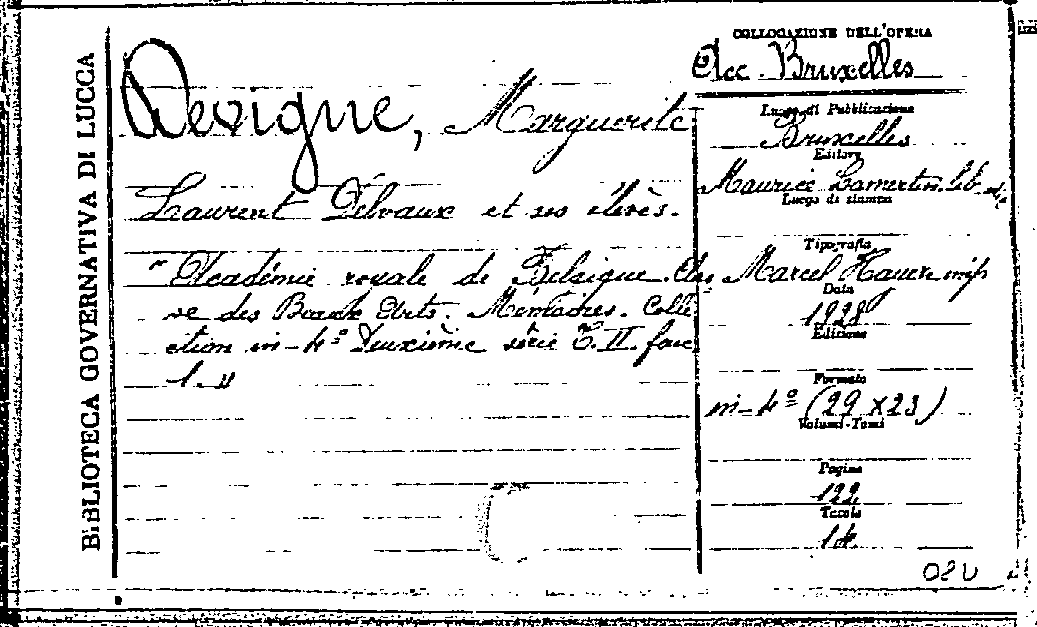 BIBLIOTECA GOVERNATIVA DI LUCCA
Devigne, Marguerite
Laurent Delvaux et ses élèves.
"Académie royale de Belgique. Clas
se des Beaux Arts. Mémoires. Colle
ction in-4º Deuxième série T. II. fasc
1."
COLLOCAZIONE DELL'OPERA
Acc. Bruxelles
Luogo di Pubblicazione
Bruxelles
Editore
Maurice Lamertin lib.
Luogo di stampa
Tipografia
Marcel Hayez imp
Data
1928
Edizione
Formato
in-4º (29 x 23)
Volumi-Tomi
Pagine
122
Tavole
14